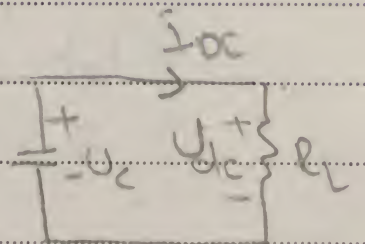 I DC
+ +
- Uc Udc RL
-